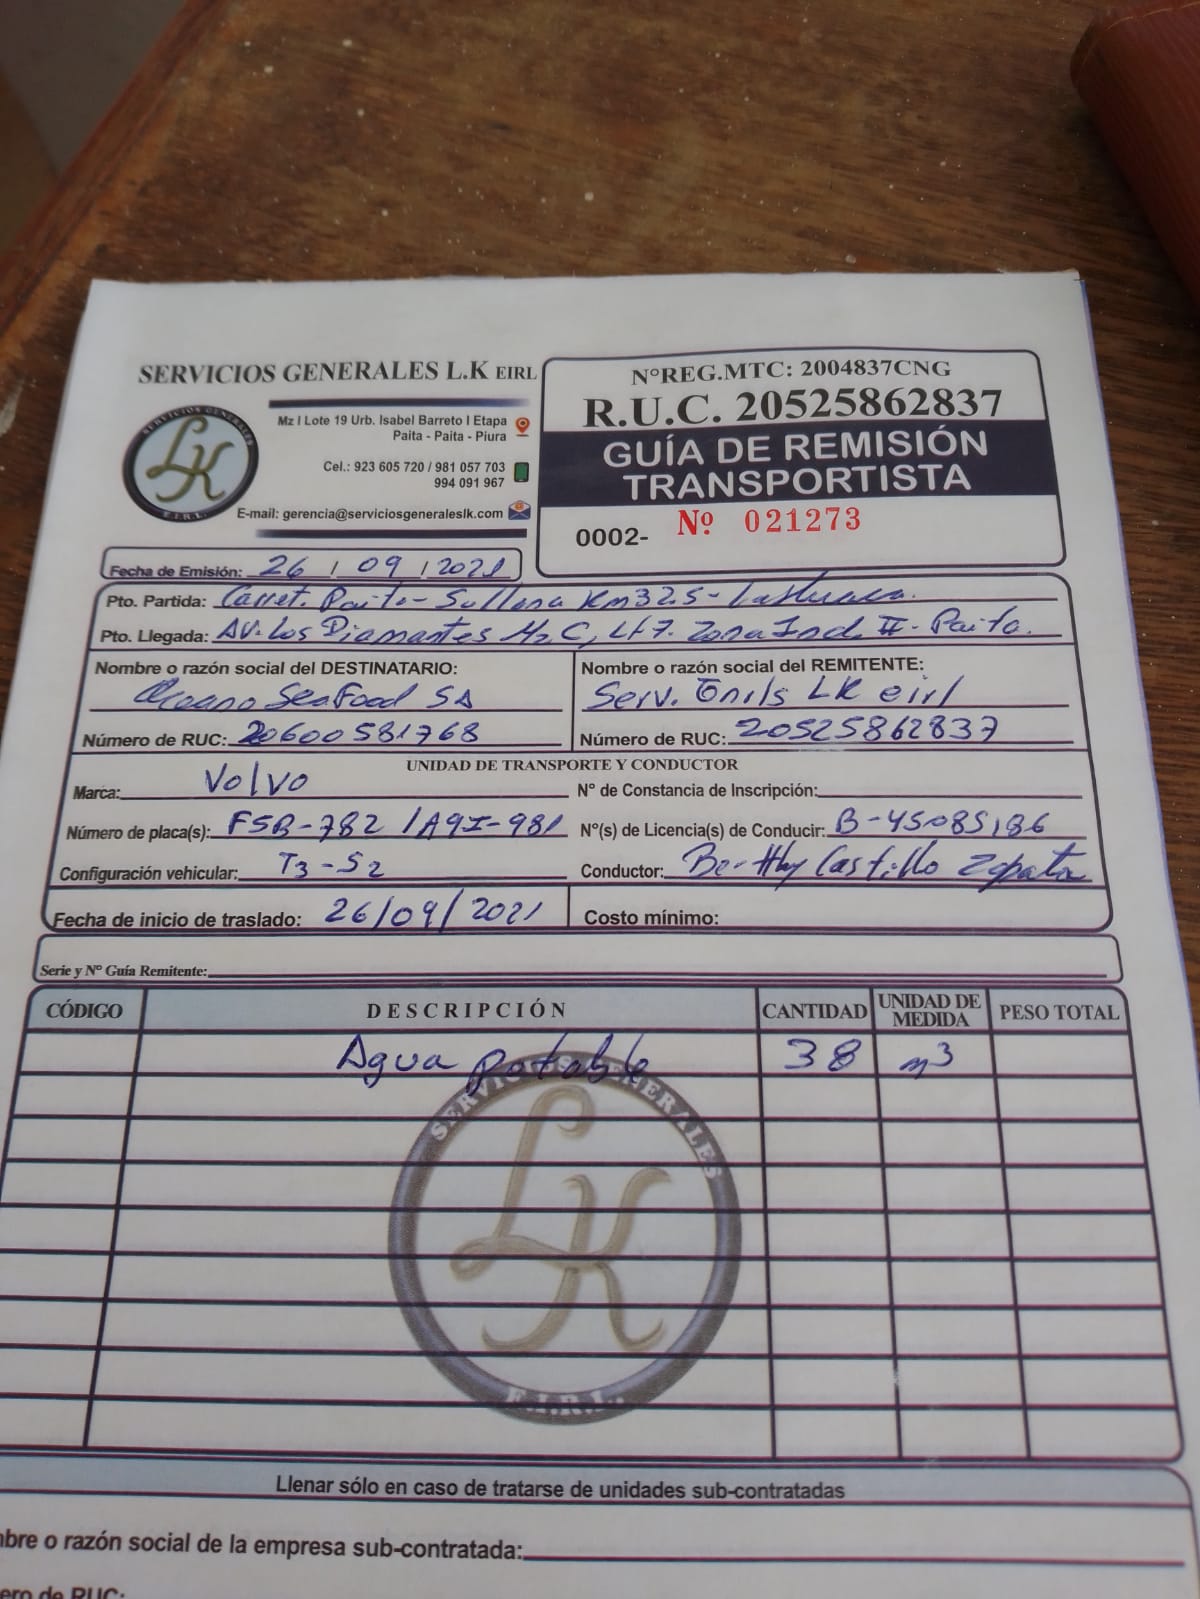 SERVICIOS GENERALES L.K EIRL
SERVICIOS GENERALES
LK
E.I.R.L.
Mz I Lote 19 Urb. Isabel Barreto I Etapa
Paita - Paita - Piura
Cel.: 923 605 720 / 981 057 703
994 091 967
E-mail: gerencia@serviciosgeneraleslk.com
N°REG.MTC: 2004837CNG
R.U.C. 20525862837
GUÍA DE REMISIÓN
TRANSPORTISTA
0002- Nº 021273
Fecha de Emisión: 26 / 09 / 2021
Pto. Partida: Carret. Paita - Sullana Km 32.5 - La Huaca.
Pto. Llegada: AV. Los Diamantes Mz C, Lt 7. Zona Ind. II - Paita.
Nombre o razón social del DESTINATARIO:
Oceano Seafood SA
Número de RUC: 20600581768
Nombre o razón social del REMITENTE:
Serv. Gnrls LK eirl
Número de RUC: 20525862837
UNIDAD DE TRANSPORTE Y CONDUCTOR
Marca: Volvo
N° de Constancia de Inscripción:
Número de placa(s): F5B-782 / A9I-981
N°(s) de Licencia(s) de Conducir: B-45085186
Configuración vehicular: T3-S2
Conductor: Castillo Zapata
Fecha de inicio de traslado: 26/09/2021
Costo mínimo:
Serie y N° Guía Remitente:
CÓDIGO DESCRIPCIÓN CANTIDAD UNIDAD DE MEDIDA PESO TOTAL
Agua potable 38 m3
SERVICIOS GENERALES
LK
E.I.R.L.
Llenar sólo en caso de tratarse de unidades sub-contratadas
mbre o razón social de la empresa sub-contratada:
ero de RUC: